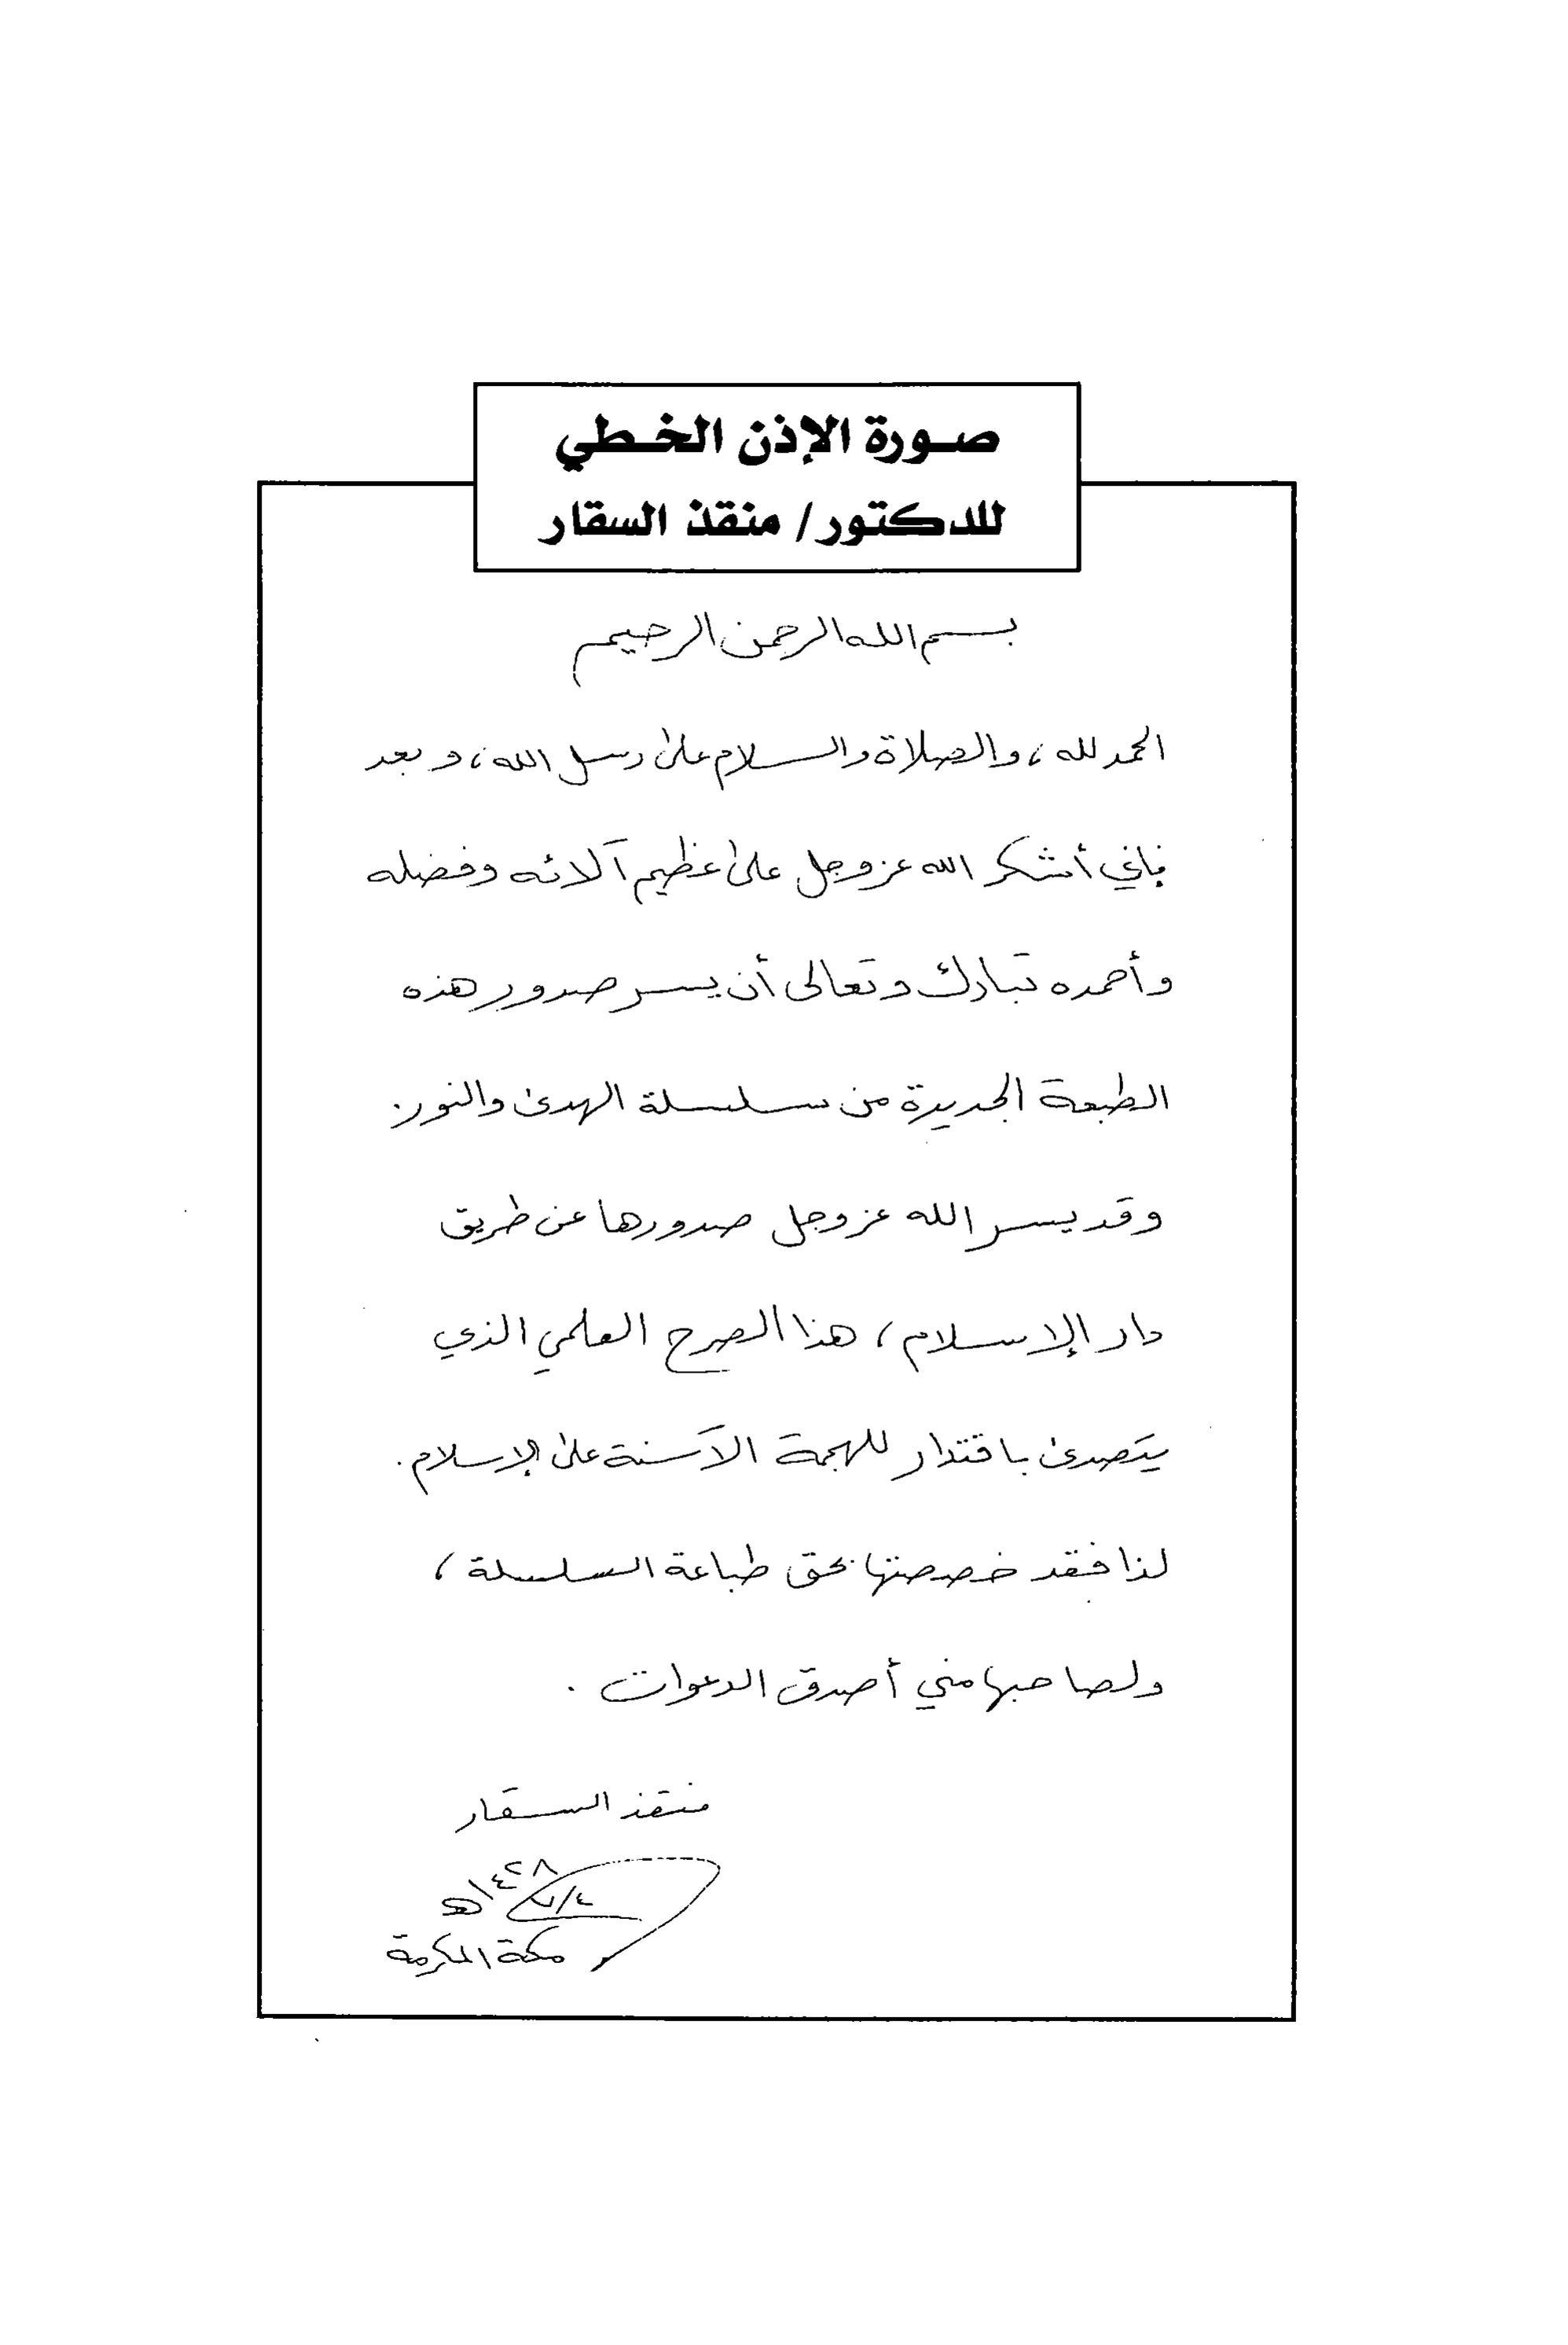 صورة الإذن الخطي
للدكتور/ منقذ السقار
بسم الله الرحمن الرحيم
الحمد لله، والصلاة والسلام على رسل الله، وبعد
فإني أشكر الله عز وجل على عظيم آلائه وفضله
وأحمده تبارك وتعالى أن يسر صدور هذه
الطبعة الجديدة من سلسلة الهدى والنور.
وقد يسر الله عز وجل صدورها عن طريق
دار الإسلام، هذا الصرح العلمي الذي
يتصدى باقتدار للهجمة الآسنة على الإسلام.
لذا فقد خصصتها بحق طباعة السلسلة،
ولصاحبها مني أصدق الدعوات.
منقذ السقار
٤/٧/١٤٢٨هـ
مكة المكرمة